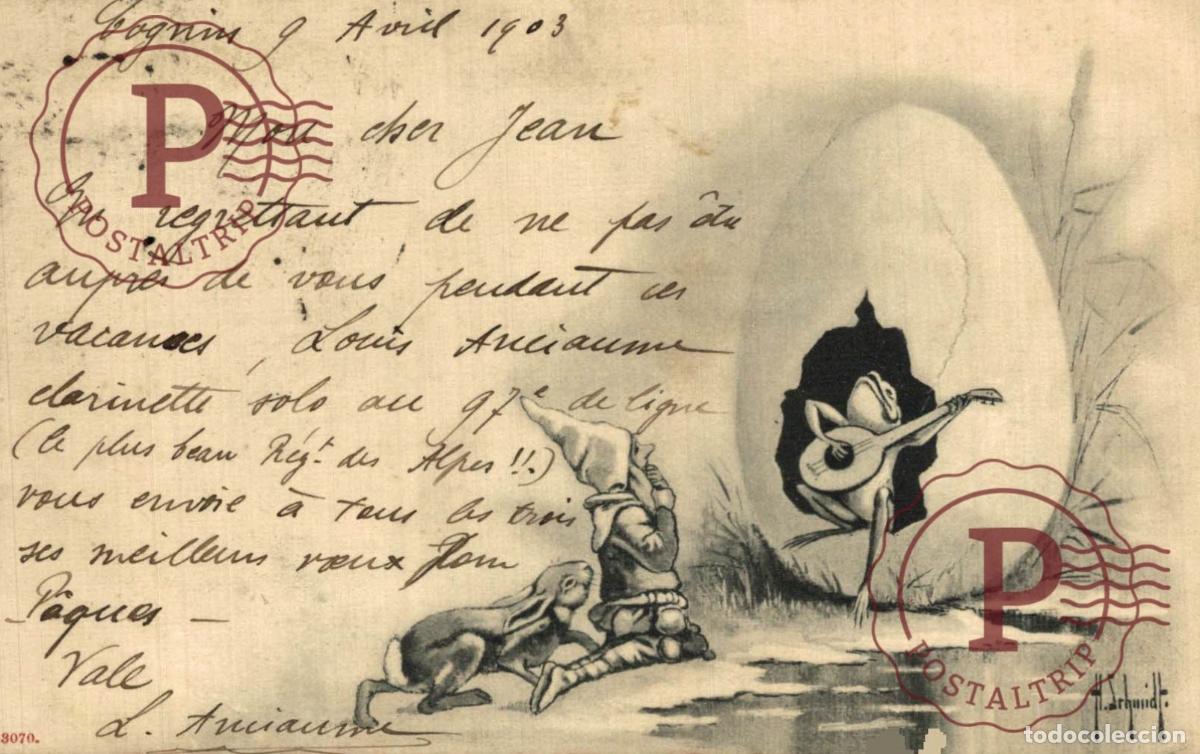 Cognin 9 Avril 1903
Mon cher Jean
En regrettant de ne pas être
auprès de vous pendant ces
vacances, Louis Anciaume
clarinette solo au 97e de ligne
(le plus beau Régt des Alpes!!.)
vous envoie à tous les trois
ses meilleurs vœux pour
Pâques —
Vale
L. Anciaume
3070.
H. Schmidt.
P
POSTALTRIP
P
POSTALTRIP
todocoleccion